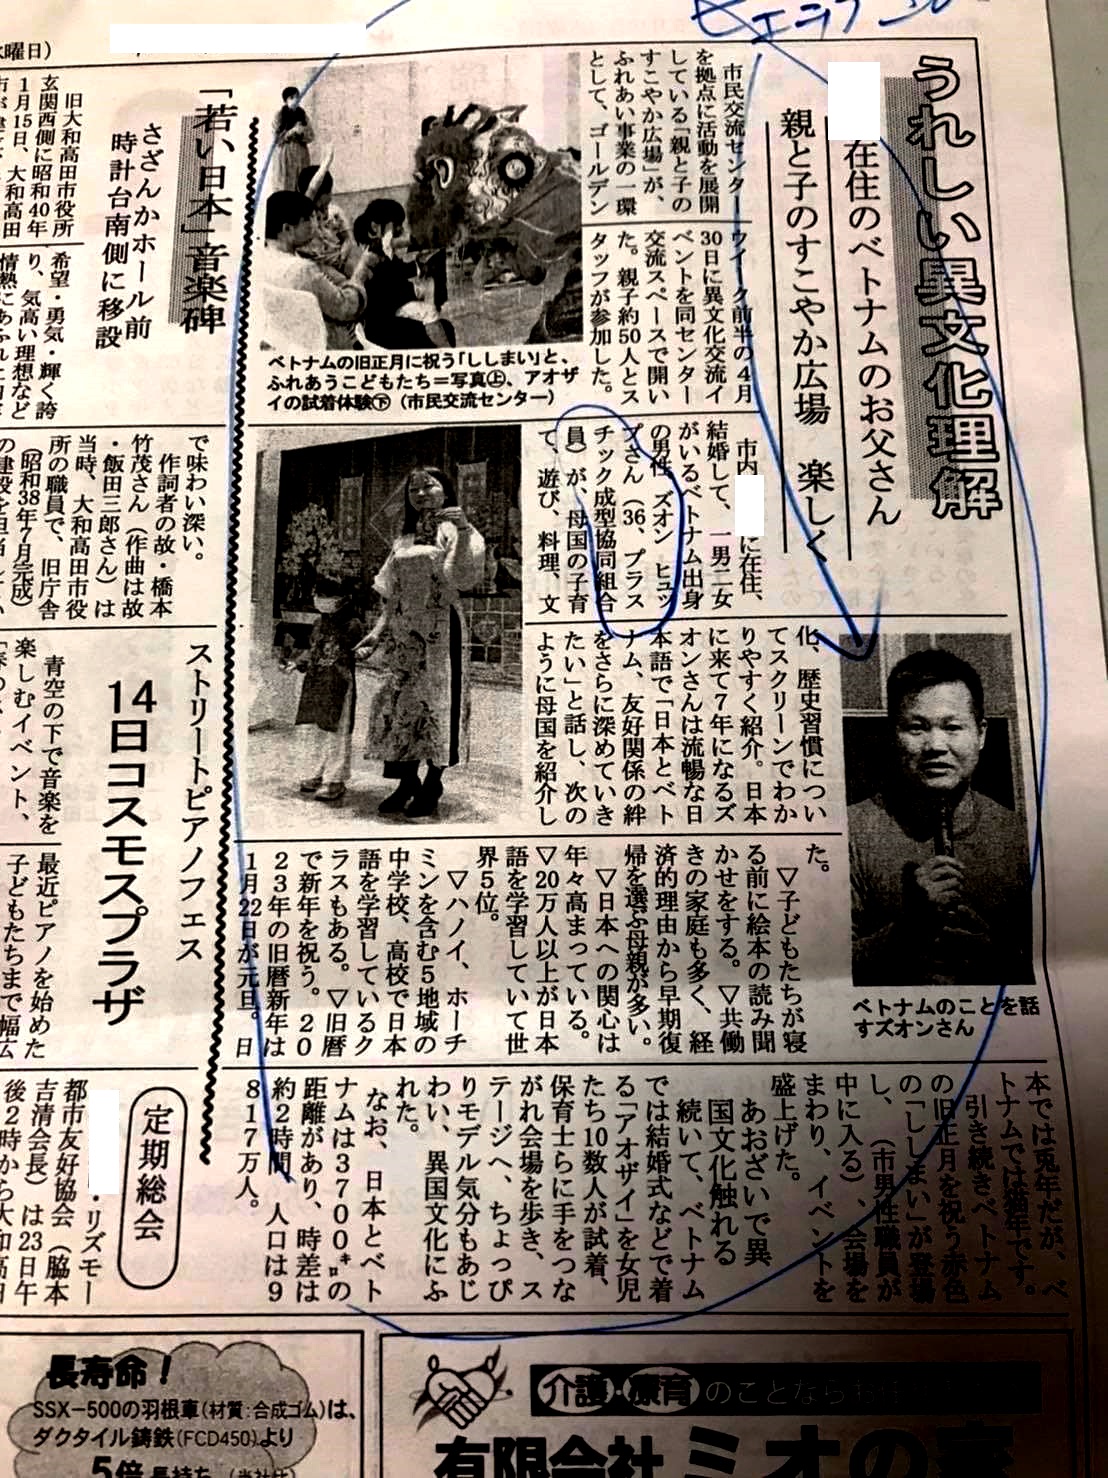 水曜日)
うれしい異文化理解
在住のベトナムのお父さん
親と子のすこやか広場 楽しく
市民交流センター
を拠点に活動を展開
している「親と子の
すこやか広場」が、
ふれあい事業の一環
として、ゴールデン
ウイーク前半の4月
30日に異文化交流イ
ベントを同センター
交流スペースで開い
た。親子約50人とス
タッフが参加した。
ベトナムの旧正月に祝う「ししまい」と、
ふれあうこどもたち=写真㊤、アオザ
イの試着体験㊦(市民交流センター)
市内
に在住、
結婚して、一男二女
がいるベトナム出身
の男性 ズオン ヒュッ
プさん(36、プラス
チック成型協同組合
員)が、母国の子育
て、遊び、料理、文
化、歴史習慣につい
てスクリーンでわか
りやすく紹介。日本
に来て7年になるズ
オンさんは流暢な日
本語で「日本とベト
ナム、友好関係の絆
をさらに深めていき
たい」と話し、次の
ように母国を紹介し
た。
▽子どもたちが寝
る前に絵本の読み聞
かせをする。▽共働
きの家庭も多く、経
済的理由から早期復
帰を選ぶ母親が多い。
▽日本への関心は
年々高まっている。
▽20万人以上が日本
語を学習していて世
界5位。
▽ハノイ、ホーチ
ミンを含む5地域の
中学校、高校で日本
語を学習しているク
ラスもある。▽旧暦
で新年を祝う。20
23年の旧暦新年は
1月22日が元旦。日
本では兎年だが、ベ
トナムでは猫年です。
引き続きベトナム
の旧正月を祝う赤色
の「ししまい」が登場
し、(市男性職員が
中に入る)、会場を
まわり、イベントを
盛上げた。
あおざいで異
国文化触れる
続いて、ベトナム
では結婚式などで着
る「アオザイ」を女児
たち10数人が試着、
保育士らに手をつな
がれ会場を歩き、ス
テージへ、ちょっぴ
りモデル気分もあじ
わい、異国文化にふ
れた。
なお、日本とベト
ナムは3700㌔の
距離があり、時差は
約2時間、人口は9
817万人。
ベトナムのことを話
すズオンさん
「若い日本」音楽碑
さざんかホール前
時計台南側に移設
旧大和高田市役所
玄関西側に昭和40年
1月15日、大和高田
希望・勇気・輝く誇
り、気高い理想など
で味わい深い。
作詞者の故・橋本
竹茂さん(作曲は故
・飯田三郎さん)は
当時、大和高田市役
所の職員で、旧庁舎
(昭和38年7月完成)
ストリートピアノフェス
14日コスモスプラザ
青空の下で音楽を
楽しむイベント、
最近ピアノを始めた
子どもたちまで幅広
定期総会
・リズモー
都市友好協会(脇本
吉清会長)は23日午
後2時から大和高田
長寿命!
SSX-500の羽根車(材質:合成ゴム)は、
ダクタイル鋳鉄(FCD450)より
5倍長持ち
介護・療育のことなら
有限会社ミオの森